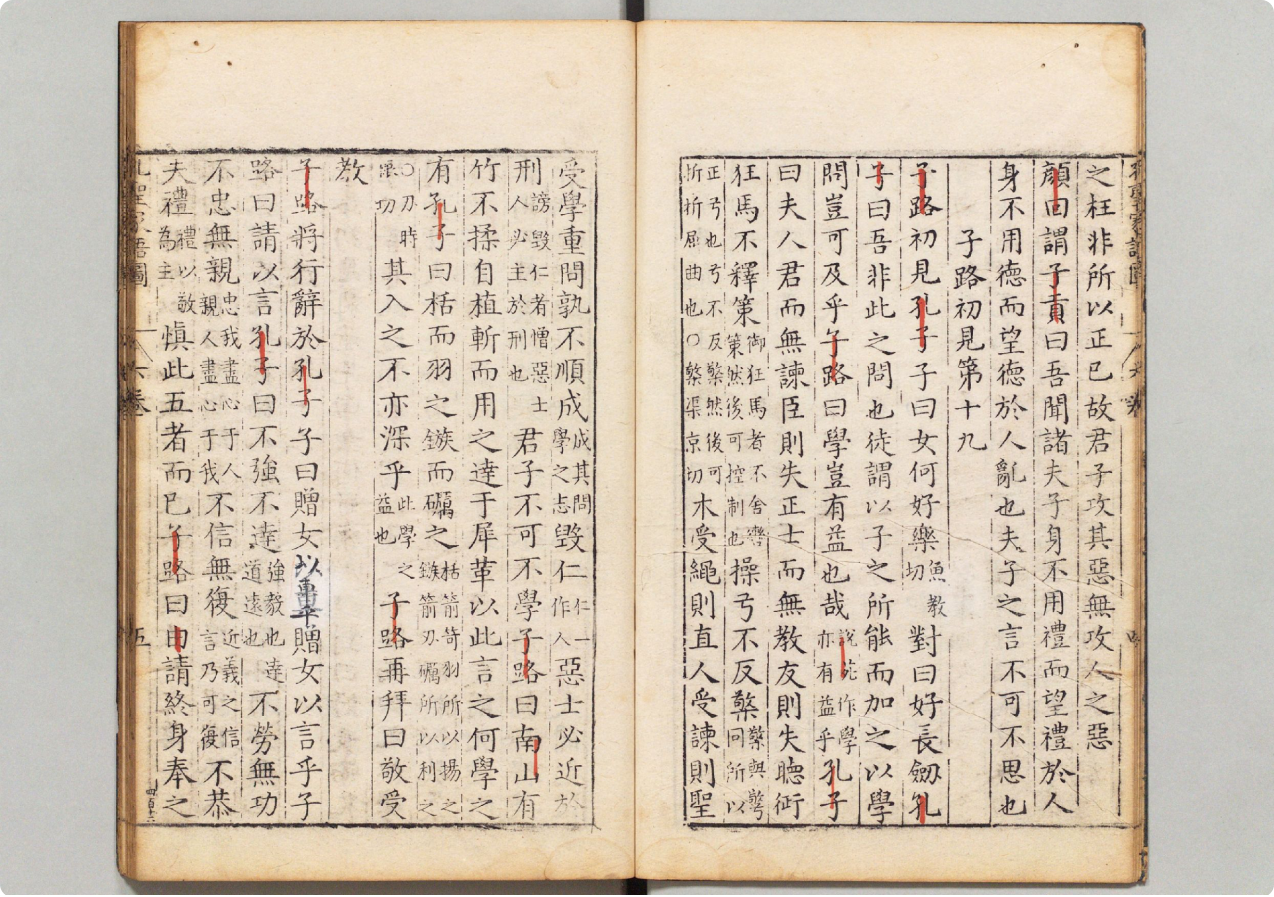 之枉非所以正已故君子攻其惡無攻人之惡
顔回謂子貢曰吾聞諸夫子身不用禮而望禮於人
身不用德而望德於人亂也夫子之言不可不思也
子路初見第十九
子路初見孔子子曰女何好樂魚教切對曰好長劔孔
子曰吾非此之問也徒謂以子之所能而加之以學
問豈可及乎子路曰學豈有益也哉說苑作學亦有益乎孔子
曰夫人君而無諫臣則失正士而無教友則失聴
狂馬不釋策御狂馬者不舍轡策然後可控制也操弓不反檠檠與同所以
正弓也弓不反檠然後可折折屈曲也○檠渠京切木受繩則直人受諫則聖
受學重問孰不順成成其問學之志毀仁仁一作人惡士必近於
刑謗毀仁者憎惡士人必主於刑也君子不可不學子路曰南山有
竹不揉自植斬而用之達于犀革以此言之何學之
有孔子曰栝而羽之鏃而礪之栝箭笴羽所以揚之鏃箭刃礪所以利之
○刃時切其入之不亦深乎此學之益也子路再拜曰敬受
教
子路將行辭於孔子子曰贈女以車乎贈女以言乎子
路曰請以言孔子曰不強不達強毅也達道遠也不勞無功
不忠無親忠我盡心于人親人盡心于我不信無復近義之信言乃可復不恭
夫禮禮以敬為主愼此五者而已子路曰由請終身奉之
孔聖家語圖
卷
五